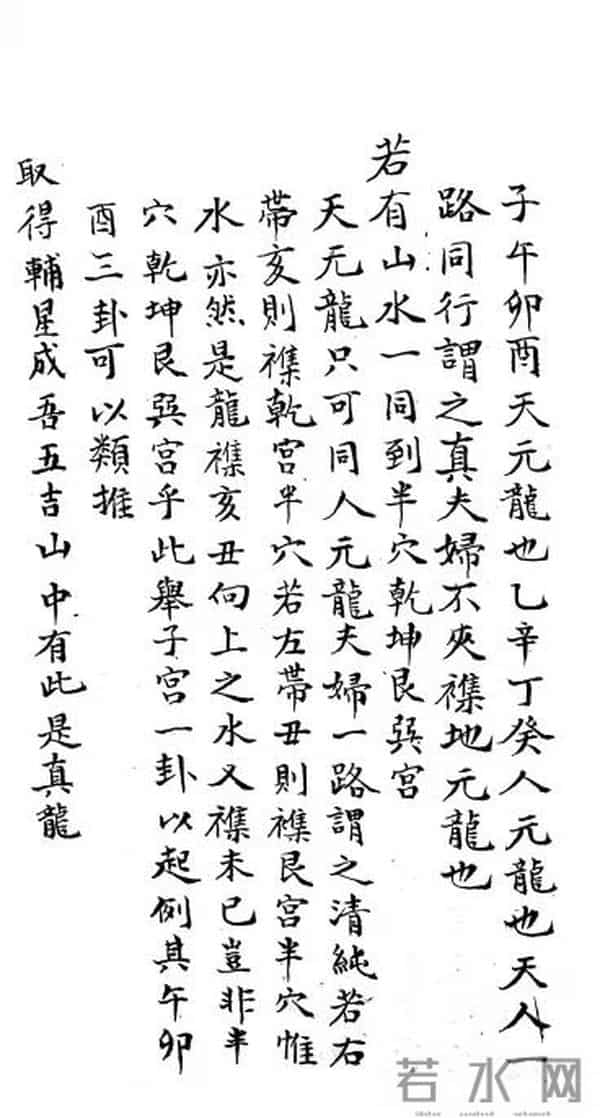 子午卯酉天元龍也乙辛丁癸人元龍也天人一
路同行謂之真夫婦不夾襍地元龍也
若有山水一同到半穴乾坤艮巽宮
天元龍只可同人元龍夫婦一路謂之清純若右
帶亥則襍乾宮半穴若左帶丑則襍艮宮半穴惟
水亦然是龍襍亥丑向上之水又襍未巳豈非半
穴乾坤艮巽宮乎此舉子宮一卦以起例其午卯
酉三卦可以類推
取得輔星成吾五吉山中有此是真龍
若水网